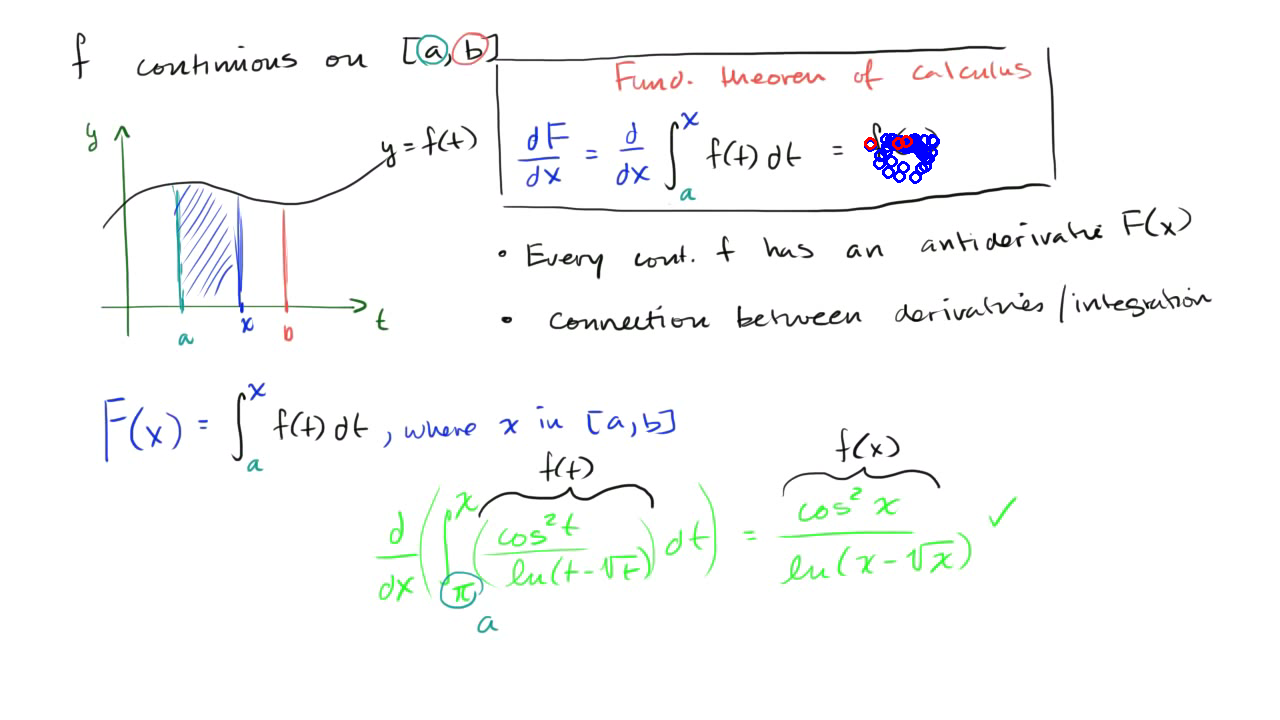 f continuous on [a, b]
Fund. theorem of calculus
dF/dx = d/dx ∫_a^x f(t) dt =
y
y = f(t)
a x b t
• Every cont. f has an antiderivative F(x)
• connection between derivatives/integration
F(x) = ∫_a^x f(t) dt, where x in [a, b]
f(t) f(x)
d/dx (∫_π^x (cos²t / ln(t-√t)) dt) = cos²x / ln(x-√x) ✓
a